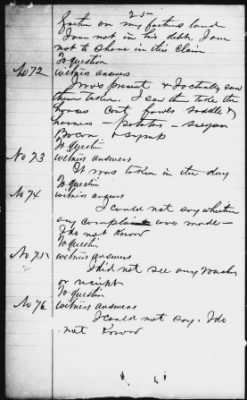 25
father on my father's land
I am not in his debt. I am
not to share in this claim
To question
No 72 witness answers
I was present & I actually saw
them taken. I saw them take the
horses cart fowls saddle &
harness — potatoes — sugar
Bacon & syrup
To questin
No 73 witness answers
It was taken in the day
To questin
No 74 witness answers
I could not say whether
any complaint was made —
I do not Know
To questin
No 75 witness answers
I did not see any voucher
or reciept
To questin
No 76 witness answers
I could not say. I do
not Know